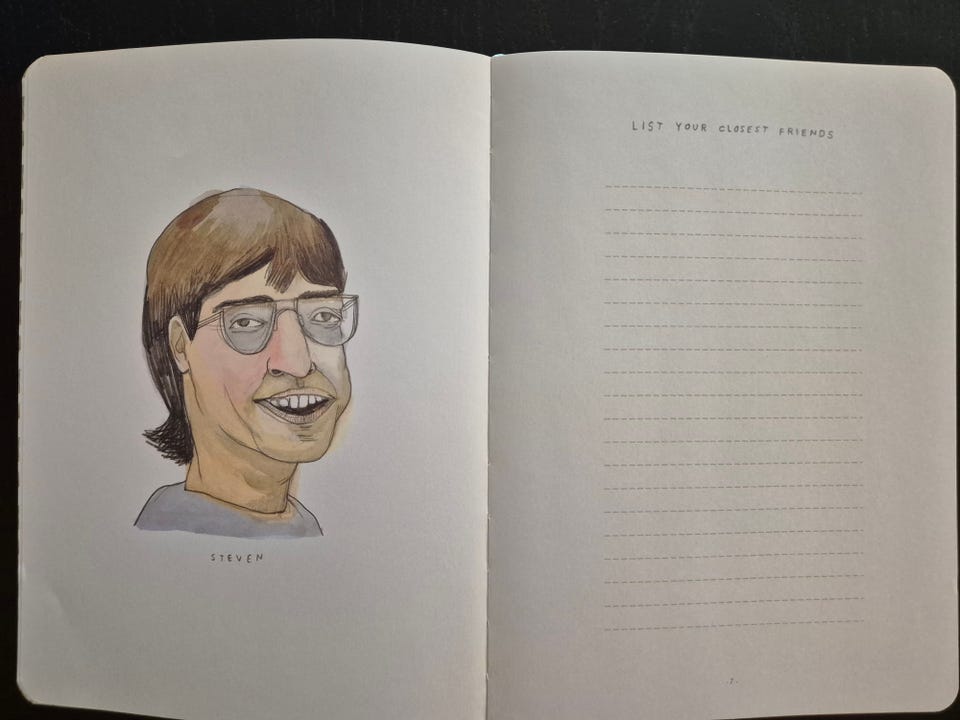 STEVEN
LIST YOUR CLOSEST FRIENDS
.7.